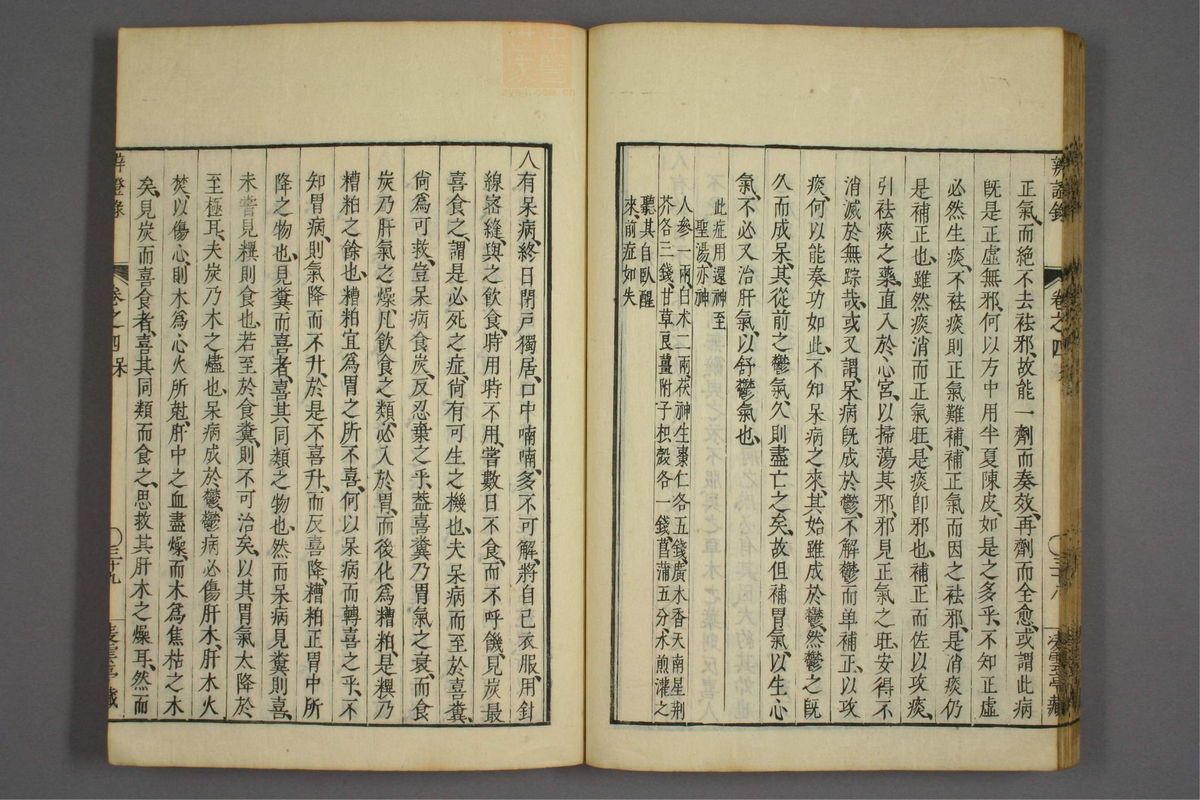 辨證錄 卷之四 三十八
正氣、而絶不去祛邪、故能一劑而奏效、再劑而全愈、或謂此病
旣是正虛無邪、何以方中用半夏陳皮、如是之多乎、不知正虛
必然生痰、不祛痰則正氣難補、補正氣而因之祛邪、是消痰仍
是補正也、雖然痰消而正氣旺、是痰卽邪也、補正而佐以攻痰、
引祛痰之藥、直入於心宮、以掃蕩其邪、邪見正氣之旺、安得不
消滅於無踪哉、或又謂、呆病旣成於鬱、不解鬱而单補正、以攻
痰、何以能奏功如此、不知呆病之來、其始雖成於鬱、然鬱之旣
久而成呆、其從前之鬱氣、久則盡亡之矣、故但補胃氣、以生心
氣、不必又治肝氣、以舒鬱氣也、
此症用還神至
聖湯亦神
人參一兩、白术二兩、茯神生棗仁各五錢、廣木香天南星荆
芥各三錢、甘草良薑附子枳殻各一錢、菖蒲五分、水煎灌之
聽其自臥醒
來、前症如失
人有呆病、終日閉戸獨居、口中喃喃、多不可解、將自己衣服、用針
線密縫、與之飲食、時用時不用、嘗數日不食、而不呼饑、見炭最
喜食之、謂是必死之症、尙有可生之機也、夫呆病而至於喜糞、
尙爲可救、豈呆病食炭、反忍棄之乎、葢喜糞乃胃氣之衰、而食
炭乃肝氣之燥、凡飲食之類、必入於胃、而後化爲糟粕、是糞乃
糟粕之餘也、糟粕宜爲胃之所不喜、何以呆病而轉喜之乎、不
知胃病、則氣降而不升、於是不喜升、而反喜降、糟粕正胃中所
降之物也、見糞而喜者、喜其同類之物也、然而呆病見糞則喜、
未嘗見糞則食也、若至於食糞、則不可治矣、以其胃氣太降於
至極耳、夫炭乃木之燼也、呆病成於鬱、鬱病必傷肝木、肝木火
焚、以傷心、則木爲心火所尅、肝中之血盡燥、而木爲焦枯之木
矣、見炭而喜食者、喜其同類而食之、思救其肝木之燥耳、然而
辨證錄 卷之四呆 三十九